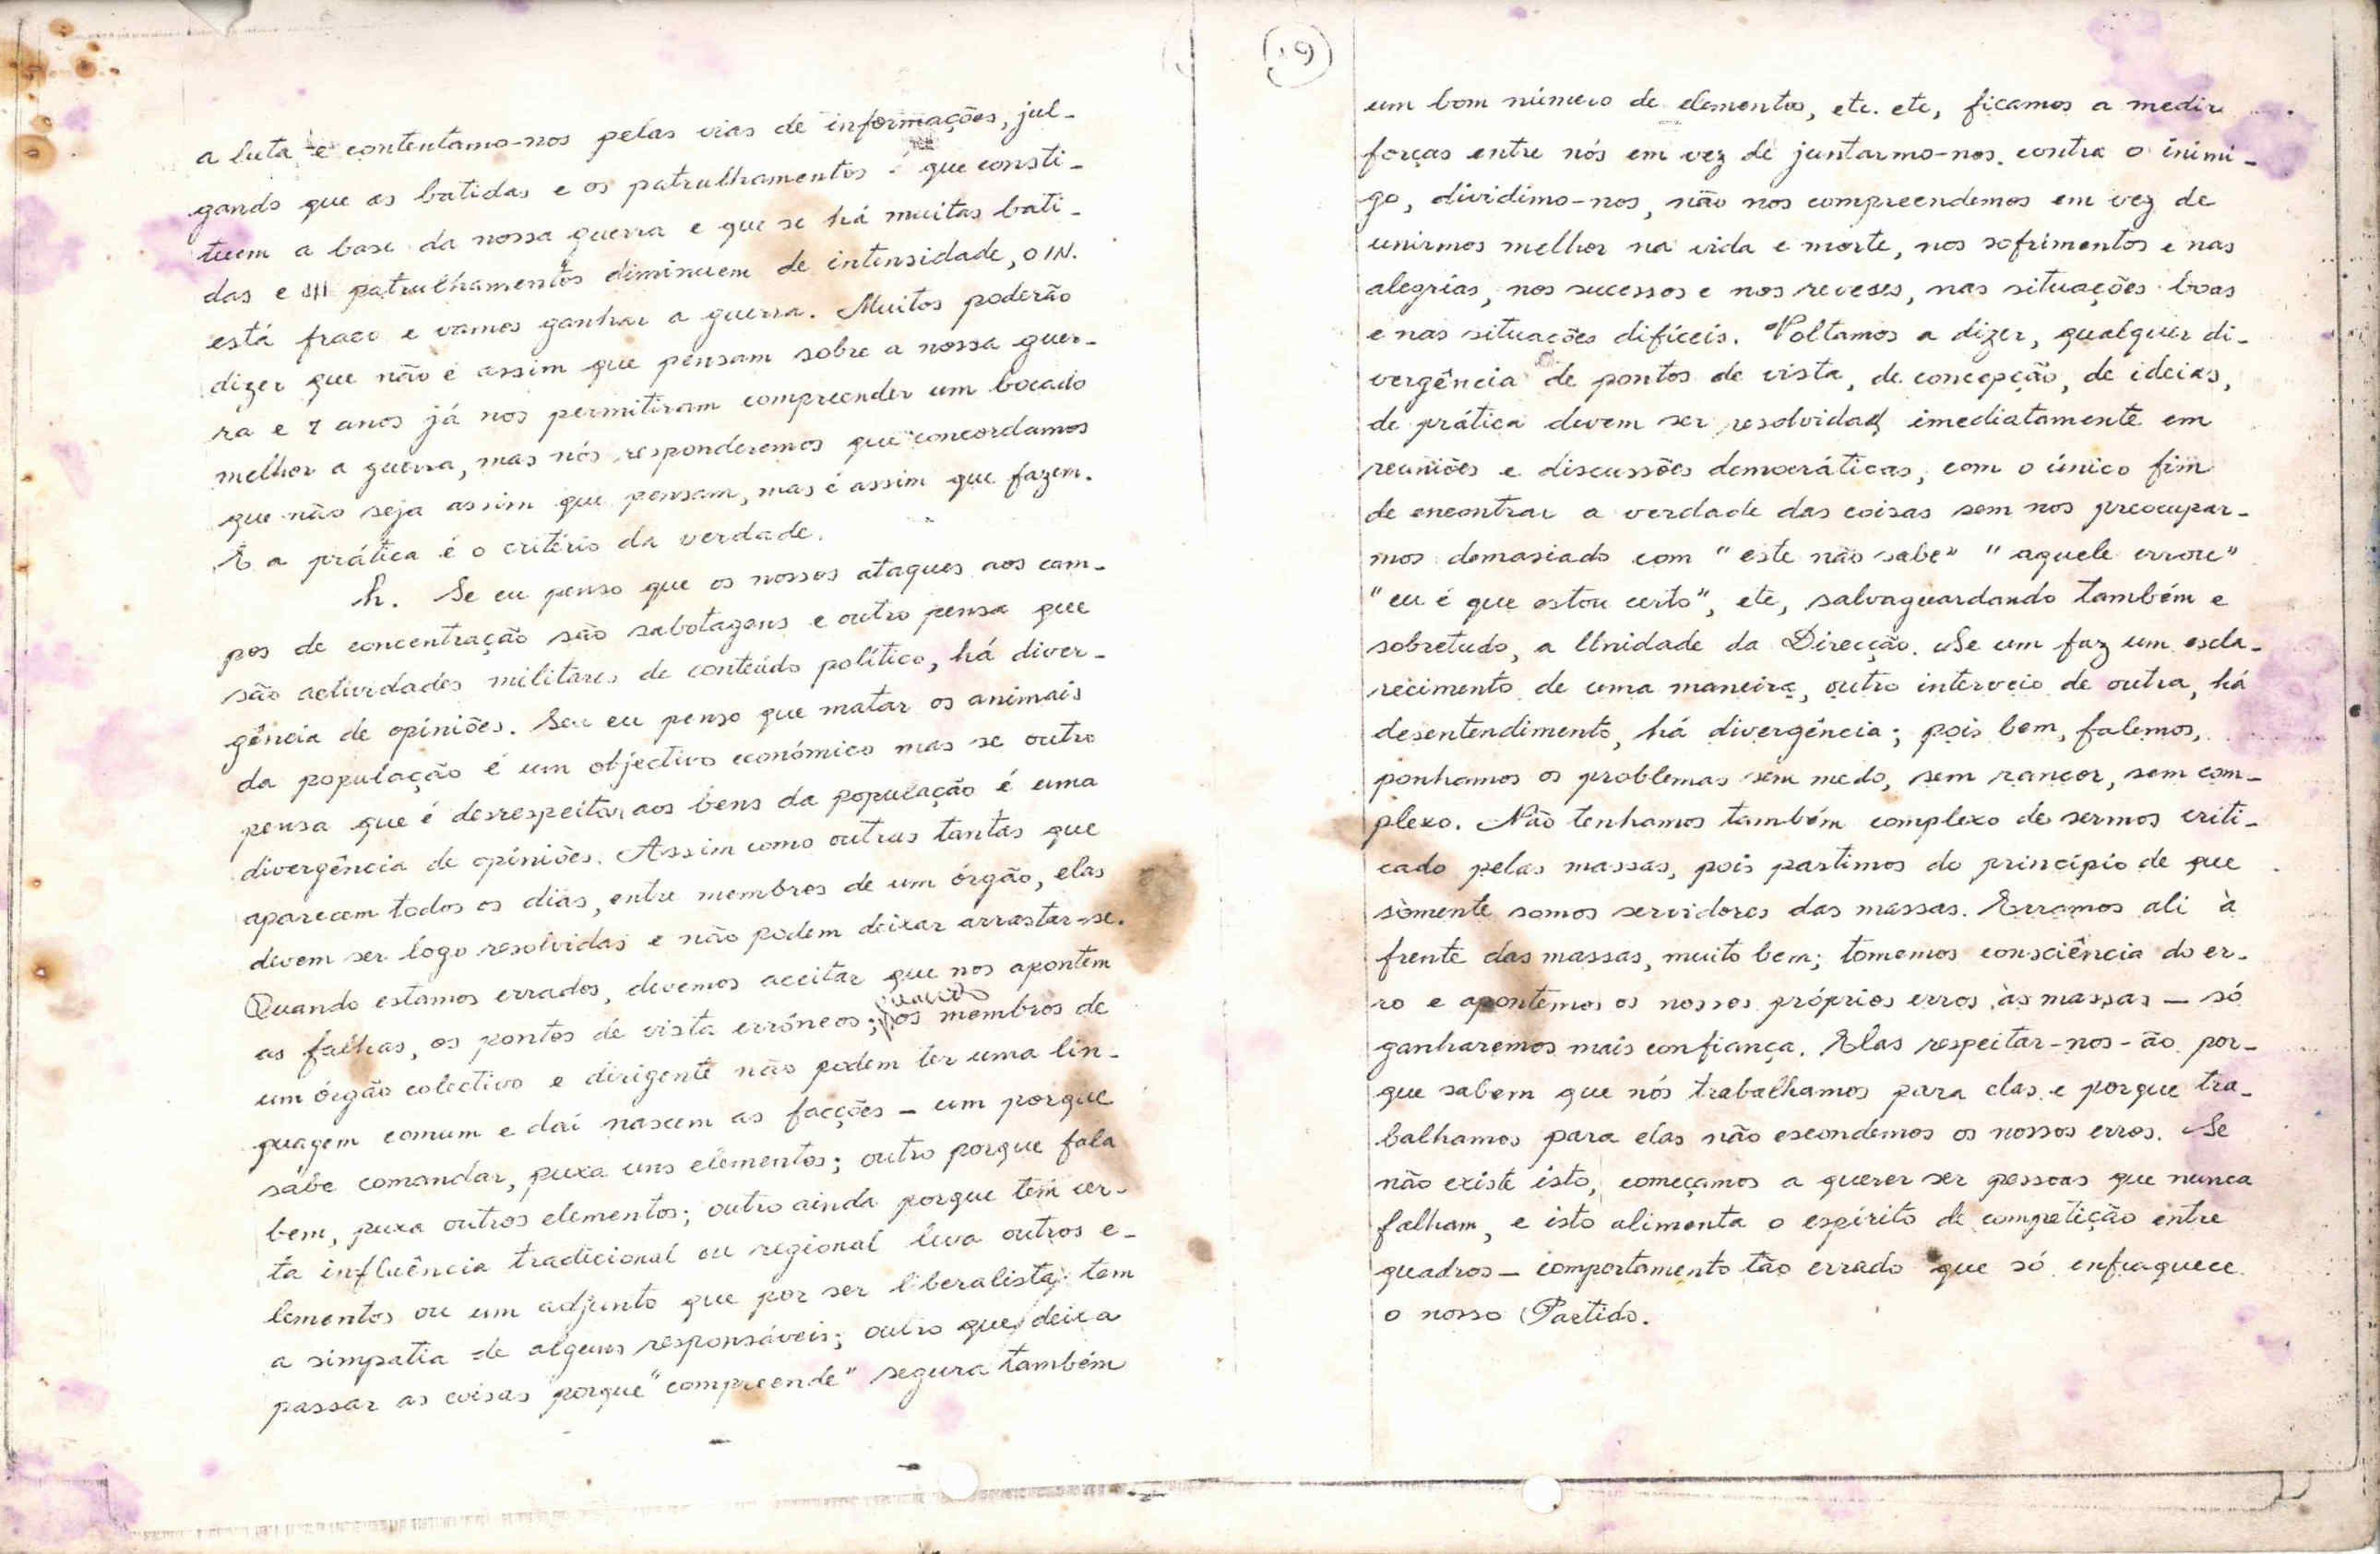 a luta e contentamo-nos pelas vias de informações, jul-
gando que as batidas e os patrulhamentos é que consti-
tuem a base da nossa guerra e que se há muitas bati-
das e patrulhamentos diminuem de intensidade, o IN.
está fraco e vamos ganhar a guerra. Muitos poderão
dizer que não é assim que pensam sobre a nossa guer-
ra e 7 anos já nos permitiram compreender um bocado
melhor a guerra, mas nós responderemos que concordamos
que não seja assim que pensam, mas é assim que fazem.
E a prática é o critério da verdade.
h. Se eu penso que os nossos ataques aos cam-
pos de concentração são sabotagens e outro pensa que
são actividades militares de conteúdo político, há diver-
gência de opiniões. Seu eu penso que matar os animais
da população é um objectivo económico mas se outro
pensa que é desrespeitar aos bens da população é uma
divergência de opiniões. Assim como outras tantas que
aparecem todos os dias, entre membros de um órgão, elas
devem ser logo resolvidas e não podem deixar arrastar-se.
Quando estamos errados, devemos aceitar que nos apontem
as falhas, os pontos de vista erróneos; quando os membros de
um órgão colectivo e dirigente não podem ter uma lin-
guagem comum e daí nascem as facções - um porque
sabe comandar, puxa uns elementos; outro porque fala
bem, puxa outros elementos; outro ainda porque tem cer-
ta influência tradicional ou regional leva outros e-
lementos ou um adjunto que por ser liberalista tem
a simpatia de alguns responsáveis; outro que deixa
passar as coisas porque "compreende" segura também
9
um bom número de elementos, etc. etc, ficamos a medir
forças entre nós em vez de juntarmo-nos contra o inimi-
go, dividimo-nos, não nos compreendemos em vez de
unirmos melhor na vida e morte, nos sofrimentos e nas
alegrias, nos sucessos e nos reveses, nas situações boas
e nas situações difíceis. Voltamos a dizer, qualquer di-
vergência de pontos de vista, de concepção, de ideias,
de prática devem ser resolvidas imediatamente em
reuniões e discussões democráticas, com o único fim
de encontrar a verdade das coisas sem nos preocupar-
mos demasiado com "este não sabe" "aquele errou"
"eu é que estou certo", etc, salvaguardando também e
sobretudo, a Unidade da Direcção. Se um faz um escla-
recimento de uma maneira, outro interveio de outra, há
desentendimento, há divergência; pois bem, falemos,
ponhamos os problemas sem medo, sem rancor, sem com-
plexo. Não tenhamos também complexo de sermos criti-
cado pelas massas, pois partimos do princípio de que
sòmente somos servidores das massas. Erramos ali à
frente das massas, muito bem; tomemos consciência do er-
ro e apontemos os nossos próprios erros às massas - só
ganharemos mais confiança. Elas respeitar-nos-ão por-
que sabem que nós trabalhamos para elas e porque tra-
balhamos para elas não escondemos os nossos erros. Se
não existe isto, começamos a querer ser pessoas que nunca
falham, e isto alimenta o espírito de competição entre
quadros - comportamento tão errado que só enfraquece
o nosso Partido.